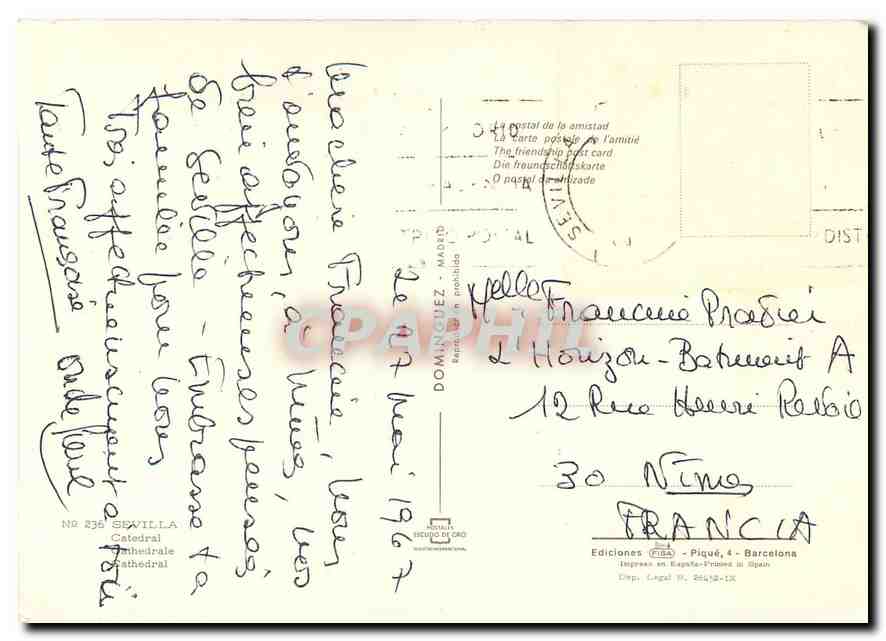 Le 17 Mai 1967
Ma chère Francine, nous
t'envoyons, à Nîmes, nos
bien affectueuses pensées
de Seville - Embrasse ta
famille pour nous
Très affectueusement à toi
Tante Françoise Oncle Paul
La postal de la amistad
La carte postale de l'amitié
The friendship post card
Die freundschaftskarte
O postal da amizade
SEVILLA
POSTAL
DIST
DOMINGUEZ - MADRID
Reproducción prohibida
CPAPHIL
Melle Francine Pradier
L'Horizon - Batiment A
12 Rue Henri Revoil
30 Nîmes
FRANCIA
Nº 236 SEVILLA
Catedral
Cathédrale
Cathedral
POSTALES
ESCUDO DE ORO
Ediciones FISA - Piqué, 4 - Barcelona
Impreso en España-Printed in Spain
Dep. Legal B. 26452-IX